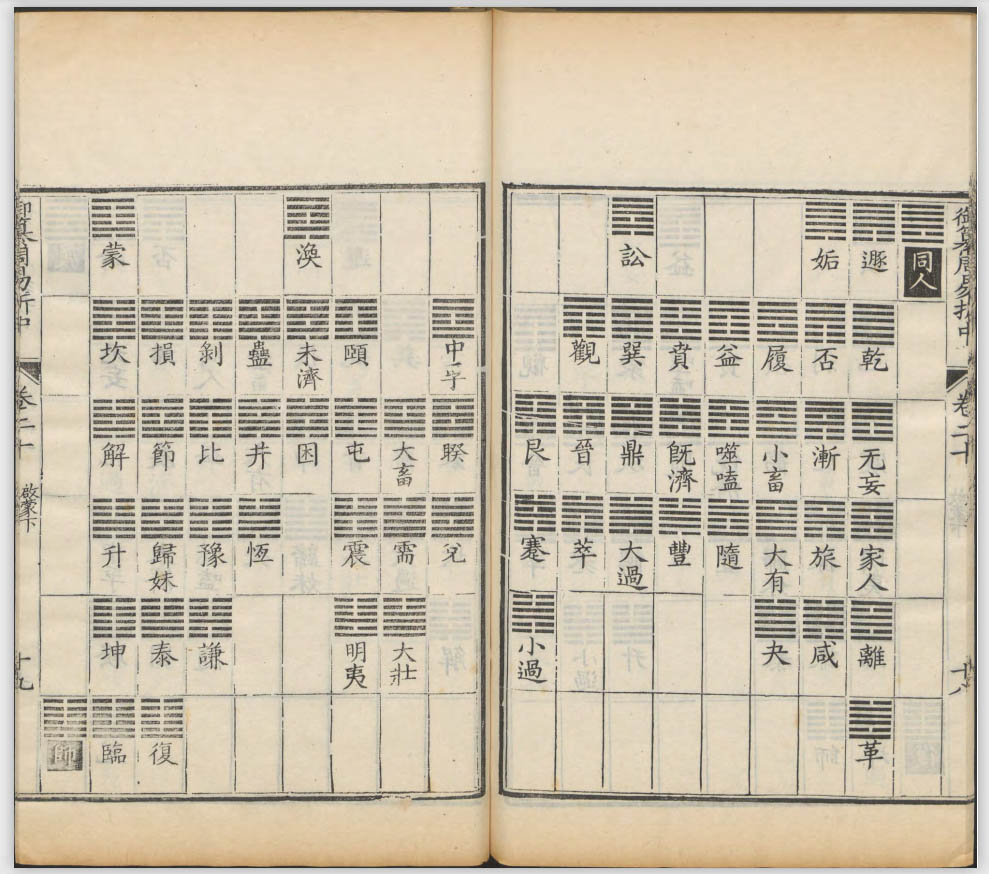 御纂周易折中 卷二十 十八
同人
遯 乾 无妄 家人 離 革
姤 否 漸 旅 咸
履 小畜 大有 夬
益 噬嗑 隨
賁 既濟 豐
訟 巽 鼎 大過
觀 晉 萃
艮 蹇 小過
中孚 睽 兌
大畜 需 大壯
頤 屯 震 明夷
渙 未濟 困
蠱 井 恆
剝 比 豫 謙
損 節 歸妹 泰 復
蒙 坎 解 升 坤 臨
師
御纂周易折中 卷二十 啟蒙下 十九